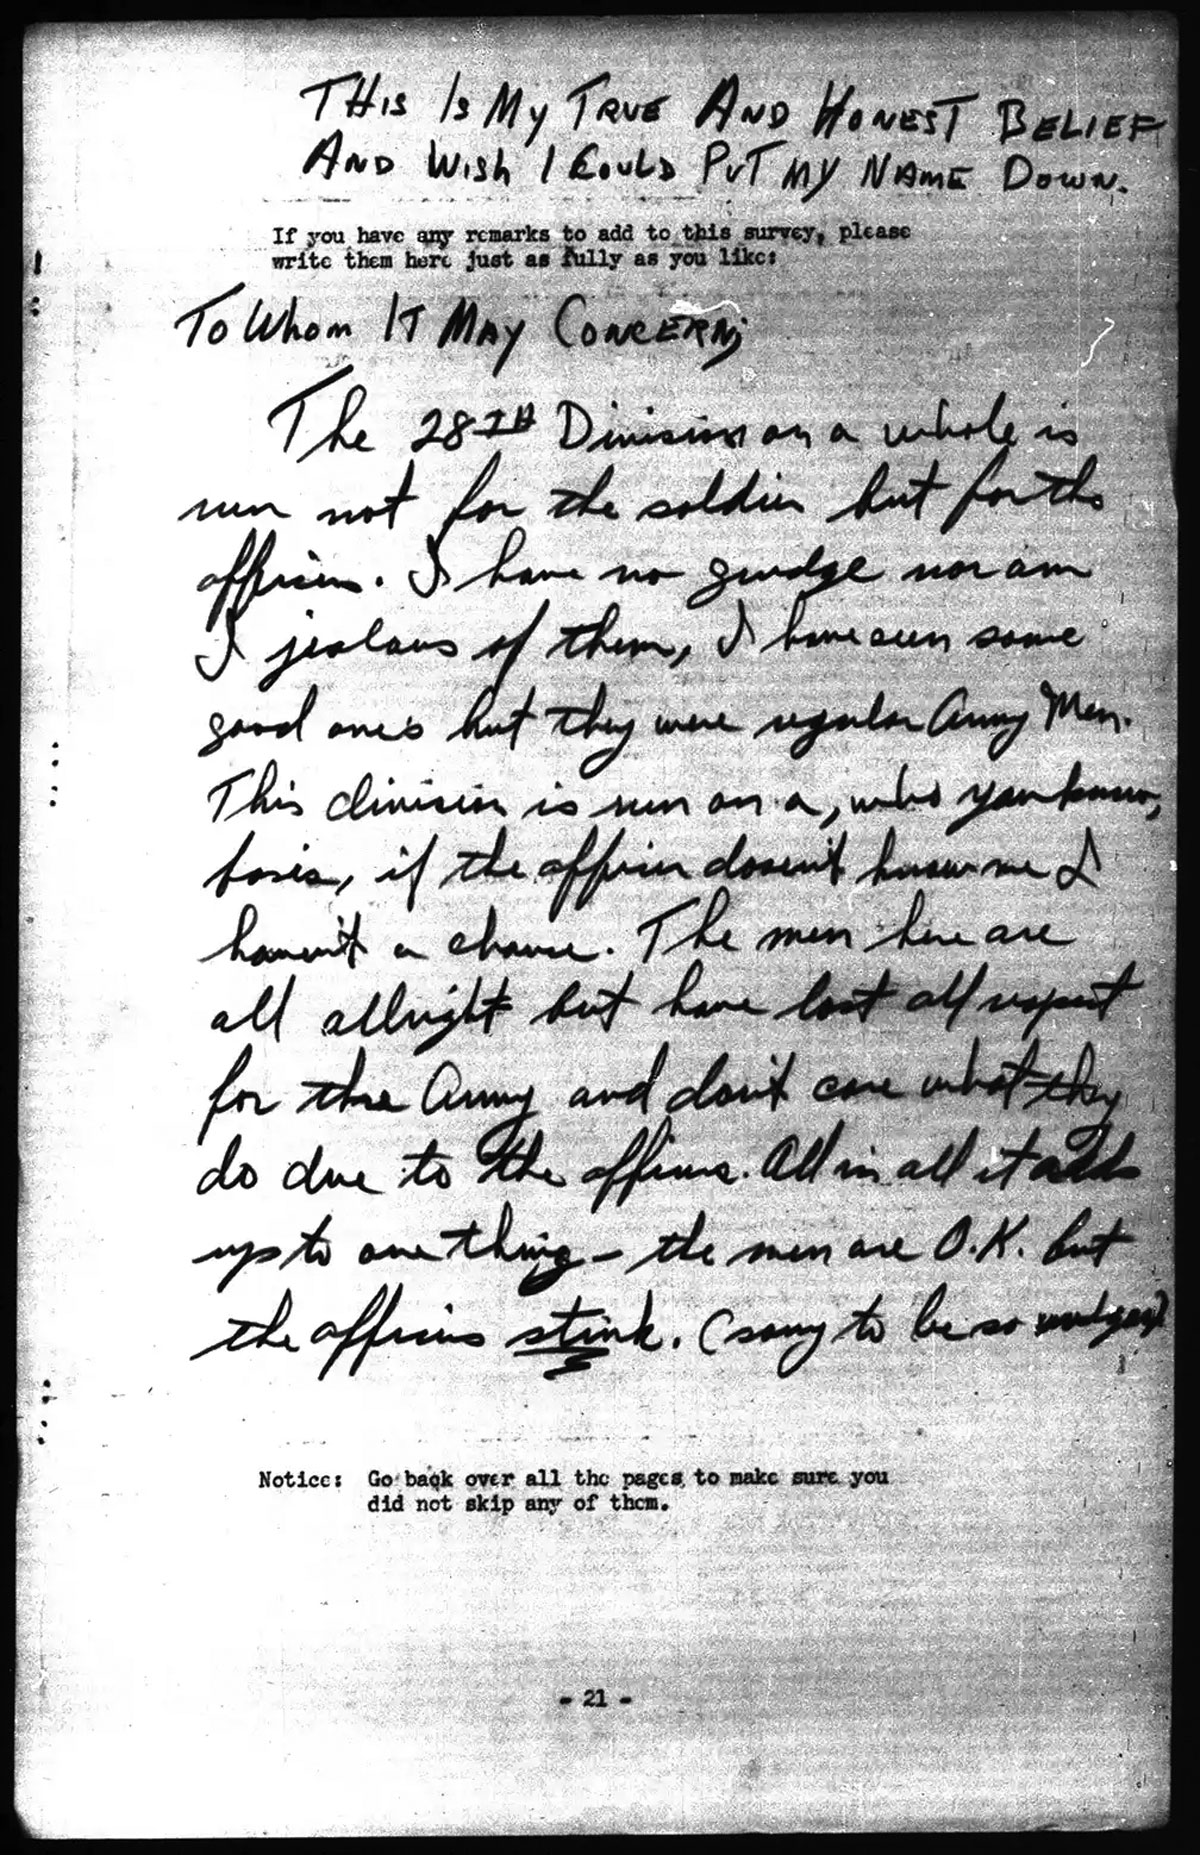 THIS IS MY TRUE AND HONEST BELIEF
AND WISH I COULD PUT MY NAME DOWN.
If you have any remarks to add to this survey, please
write them here just as fully as you like:
To Whom IT MAY CONCERN;
The 28TH Division on a whole is
run not for the soldier but for the
officers. I have no grudge nor am
I jealous of them, I have seen some
good ones but they were regular Army Men.
This division is run on a, who you know,
basis, if the officer dosen't know me I
haven't a chance. The men here are
all allright but have lost all respect
for the Army and don't care what they
do due to the officers. All in all it adds
up to one thing - the men are O.K. but
the officers stink. (sorry to be so vulgar)
Notice: Go back over all the pages to make sure you
did not skip any of them.
- 21 -